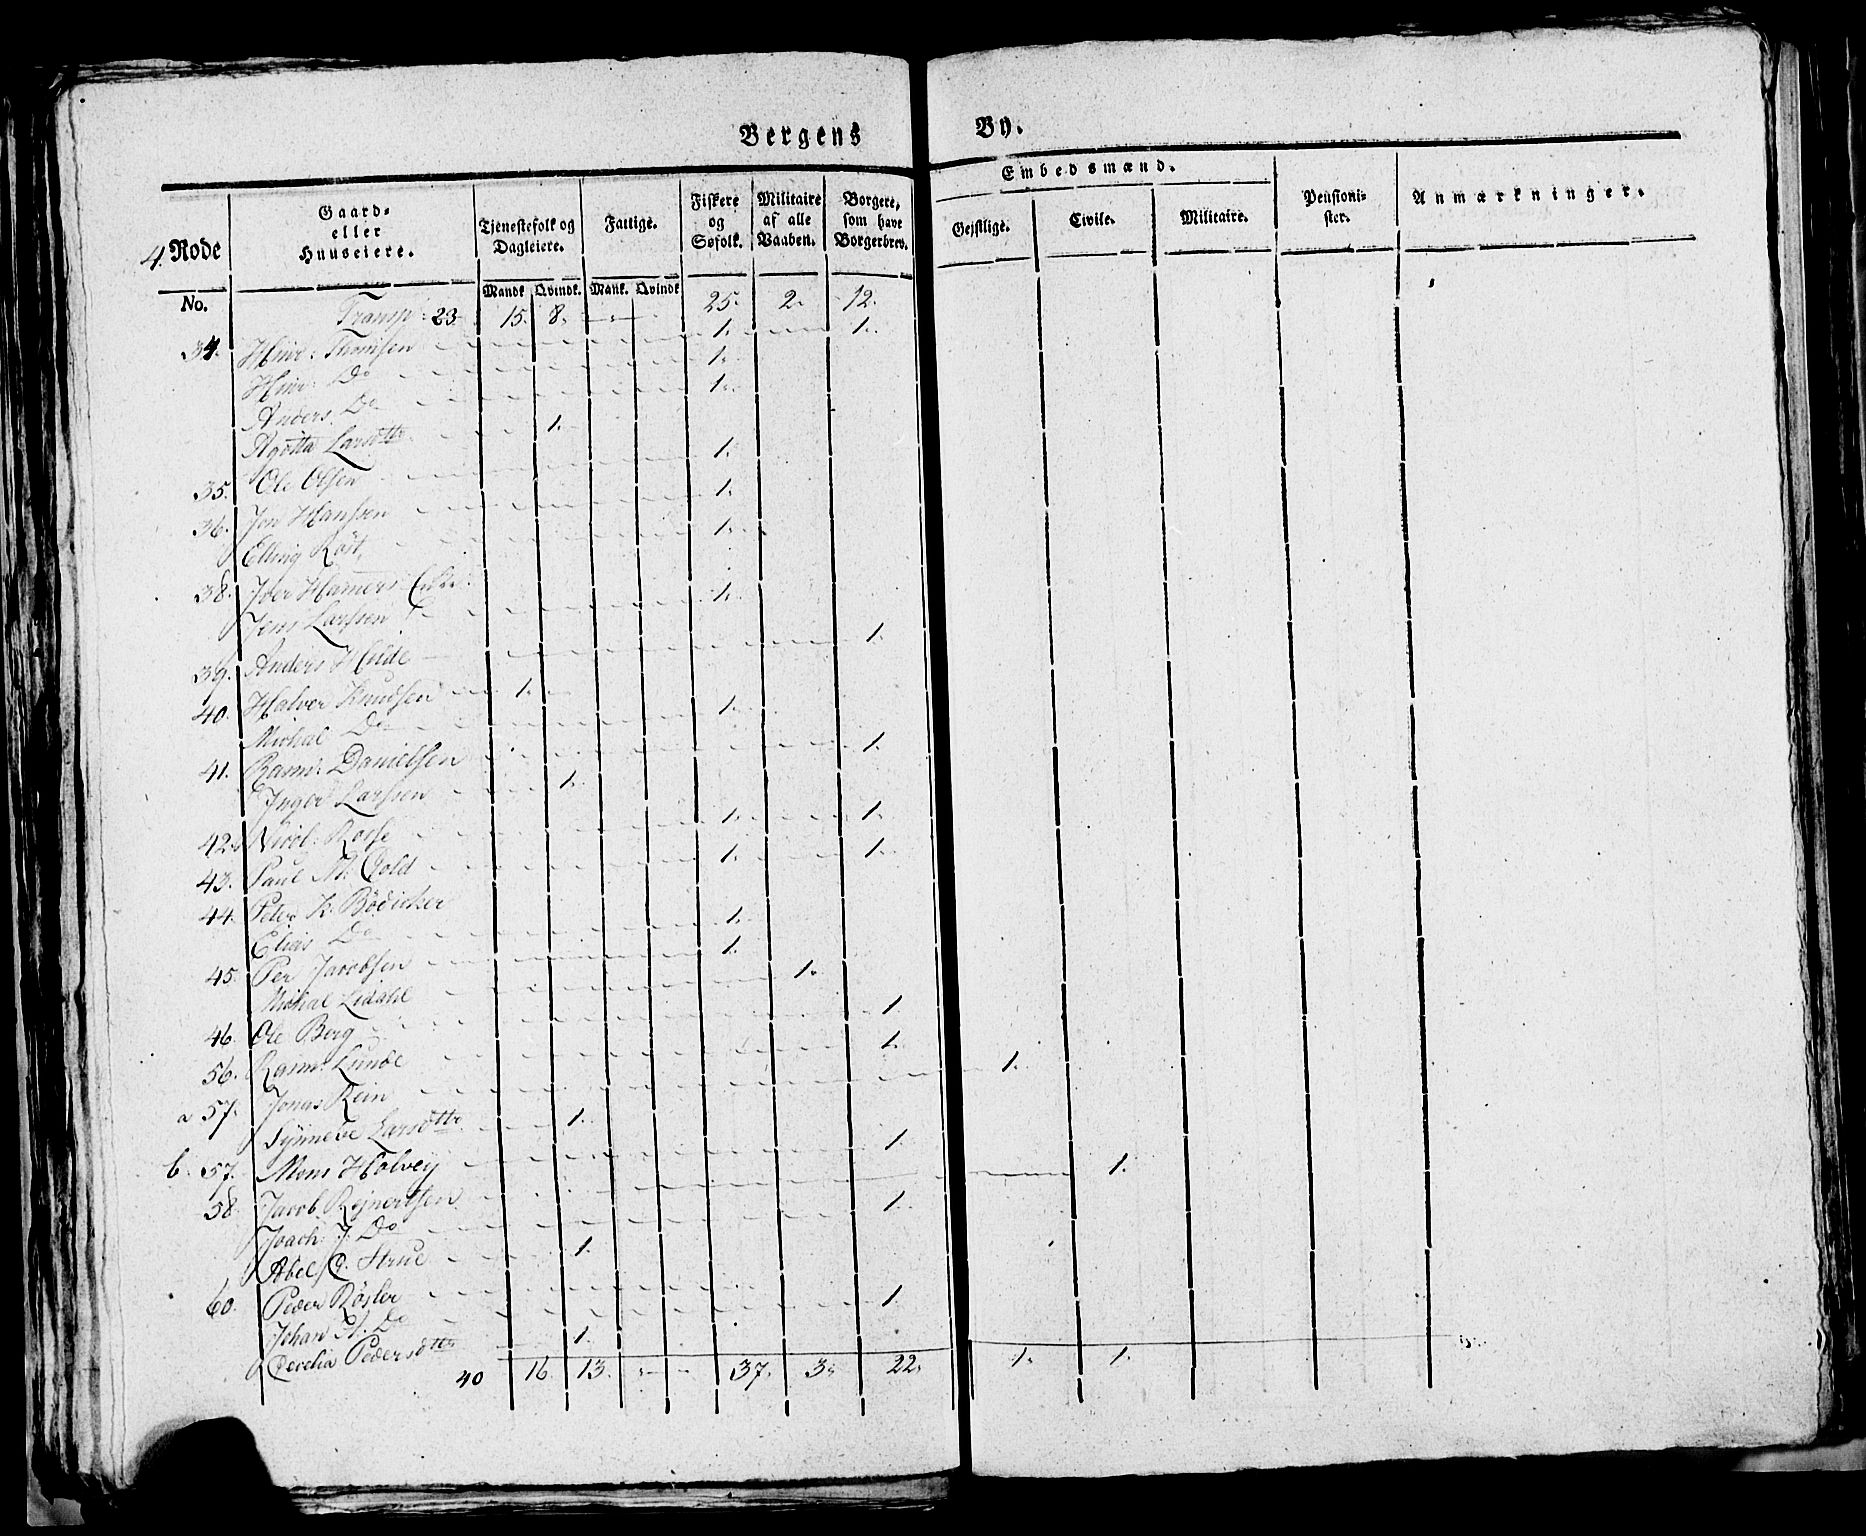 Bergens By.
4. Rode
No.
Gaard-
eller
Huuseiere.
Tjenestefolk og
Dagleiere.
Mandk. Qvindk.
Fattige.
Mank. Qvindk.
Fiskere
og
Søfolk.
Militaire
af alle
Vaaben.
Borgere,
som have
Borgerbrev.
Embedsmænd.
Gejstlige.
Civile.
Militaire.
Pensioni-
ster.
Anmærkninger.
Transp: 23. 15. 8. 25. 2. 12.
34. Hinr: Thomsen 1. 1.
Hinr: Do 1.
Anders Do 1.
Agotta Larsdtter 1.
35. Ole Olsen 1.
36. Jon Hanssen 1.
Elling Røst 1.
38. Iver Hamers
Jens Larssen 1.
39. Anders Heide 1.
40. Halvor Knudsen 1.
Michal Do 1.
41. Rasm: Danielsen 1.
Inger Larssen 1.
42. Nicol: Rosse 1. 1.
43. Paul M. Gold 1. 1.
44. Peter K. Bödicker
Elias Do 1.
45. Per Jacobsen 1.
Michal Lidahl 1.
46. Ole Berg 1.
56. Rasm: Lunde 1.
a 57. Jonas Rein 1.
Synneve Larsdtter 1.
b. 57. Mons Holvey 1.
58. Jacob Rejnertsen 1.
Joach: J. Do 1.
Abel C. Strue 1.
60. Peder Røsler
Johan H. Do 1.
Cecelia Pedersdtter 1.
40 16. 13. 37. 3. 22. 1. 1.